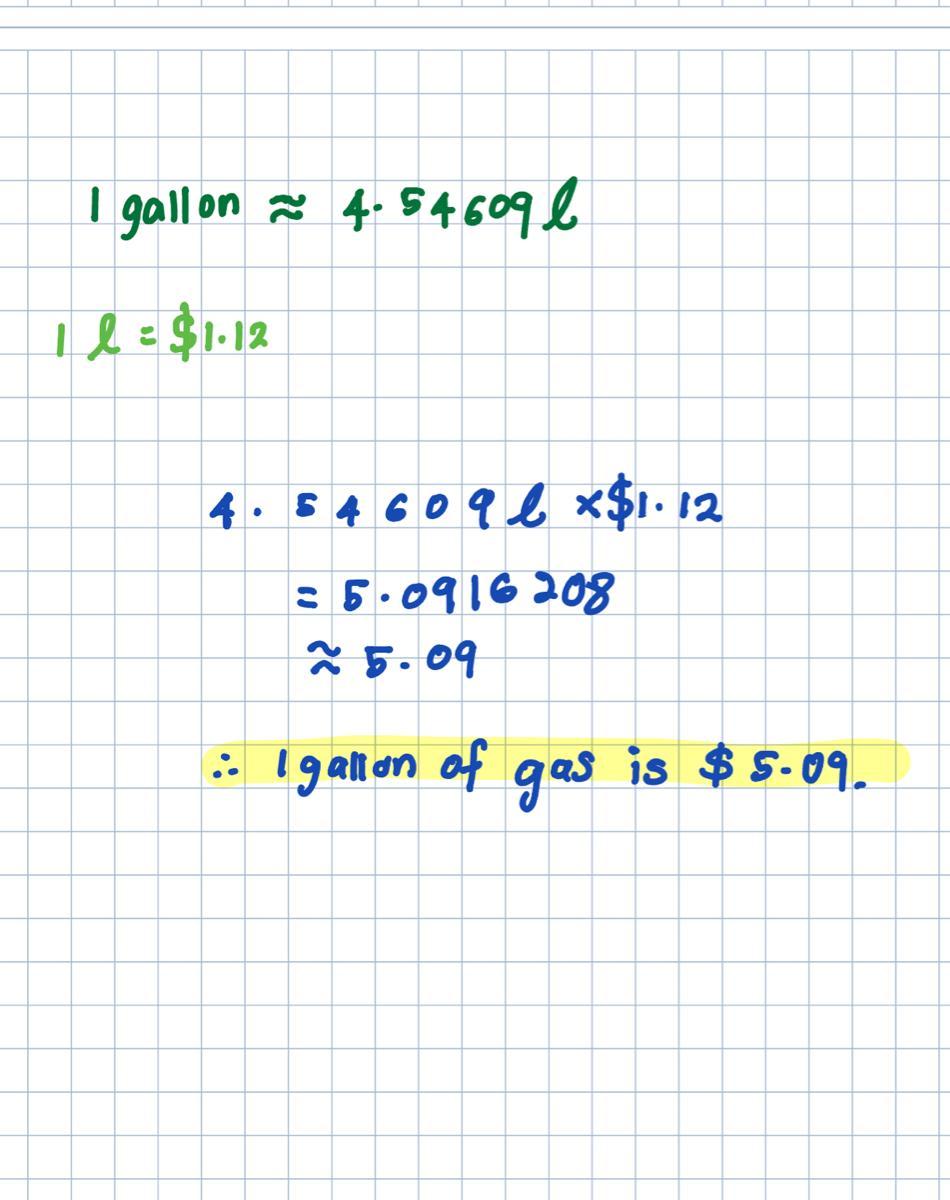 1 gallon ≈ 4.54609 l
1 l = $1.12
4.54609 l × $1.12
= 5.0916208
≈ 5.09
∴ 1 gallon of gas is $5.09.